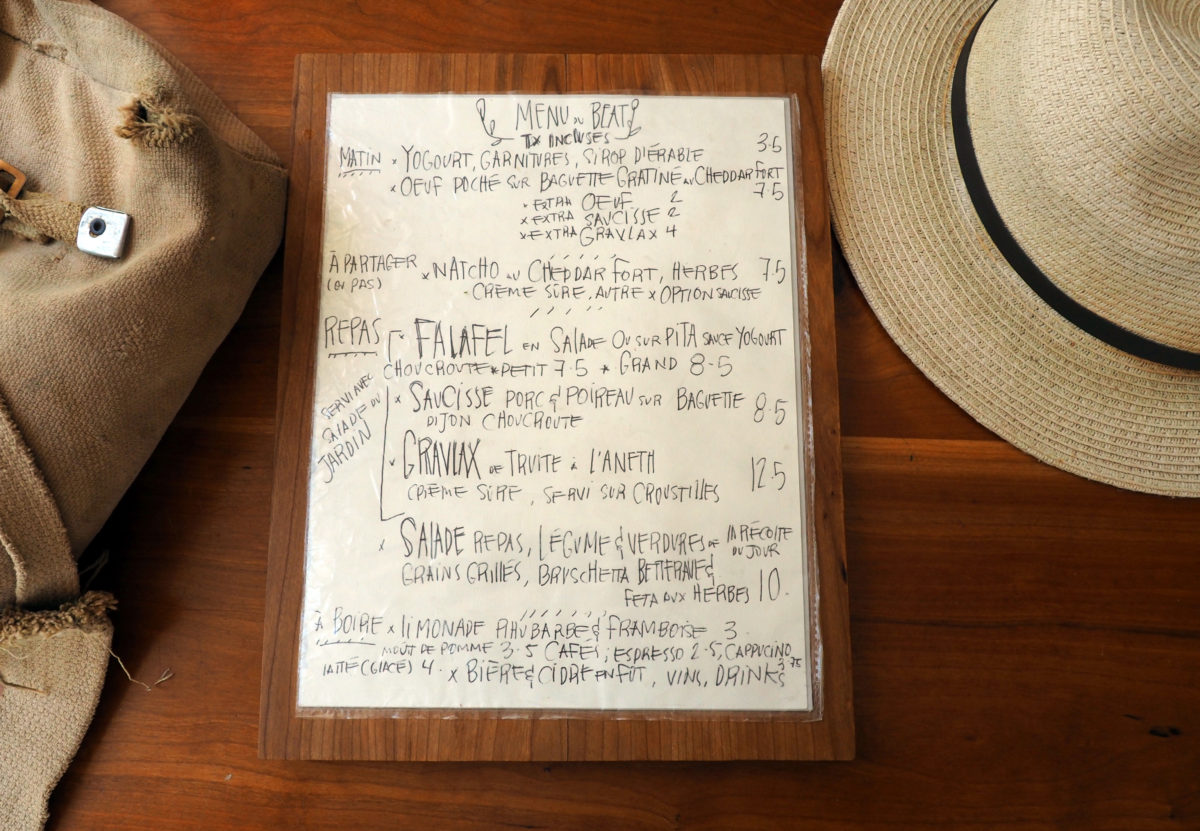 MENU DU BEAT
TX INCLUSES
MATIN x YOGOURT, GARNITURES, SIROP D'ÉRABLE 3.5
x OEUF POCHÉ SUR BAGUETTE GRATINÉ AU CHEDDAR FORT 7.5
x EXTRA OEUF 2
x EXTRA SAUCISSE 2
x EXTRA GRAVLAX 4
À PARTAGER (OU PAS) x NATCHO AU CHEDDAR FORT, HERBES 7.5
CRÈME SÛRE, AUTRE x OPTION SAUCISSE
REPAS
SERVI AVEC
SALADE DU
JARDIN
x FALAFEL EN SALADE OU SUR PITA SAUCE YOGOURT
CHOUCROUTE * PETIT 7.5 * GRAND 8.5
x SAUCISSE PORC & POIREAU SUR BAGUETTE 8.5
DIJON CHOUCROUTE
x GRAVLAX DE TRUITE À L'ANETH 12.5
CRÈME SÛRE, SERVI SUR CROUSTILLES
x SALADE REPAS, LÉGUME & VERDURES DE LA RÉCOLTE DU JOUR
GRAINS GRILLÉS, BRUSCHETTA BETTERAVE &
FETA AUX HERBES 10.
À BOIRE x LIMONADE RHUBARBE & FRAMBOISE 3
MOÛT DE POMME 3.5 CAFÉS; ESPRESSO 2.5, CAPPUCINO 3.75
LATTÉ (GLACÉ) 4. x BIÈRE & CIDRE EN FÛT, VINS, DRINKS